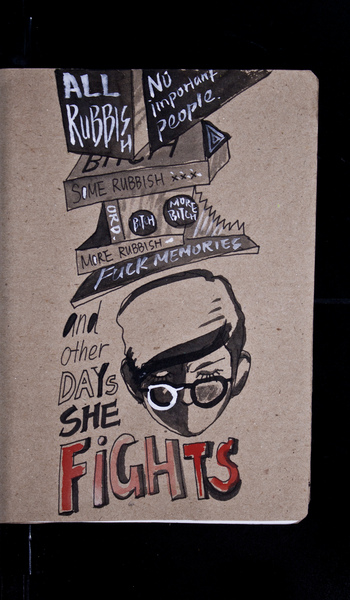 ALL
RUBBISH
No
important
people.
BITCH
SOME RUBBISH xxx
ORD.
BTCH
MORE
BITCH
MORE RUBBISH-
FUCK MEMORIES
and
other
DAYS
SHE
FiGHTS